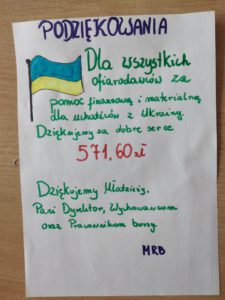 PODZIĘKOWANIA
Dla wszystkich
ofiarodawców za
pomoc finansową i materialną
dla uchodźców z Ukrainy.
Dziękujemy za dobre serce
571,60 zł
Dziękujemy Młodzieży,
Pani Dyrektor, Wychowawcom
oraz Pracownikom bursy.
MRB